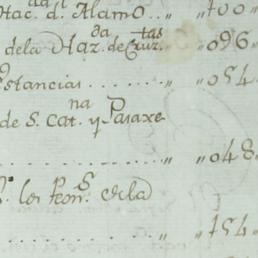 Hac.da d.l Alamo.. „ 700
dela Haz.da de Cruz.tas „ 096
estancias ...... „ 054
de S.na Cat. y Pasaxe
...... „ 048
los Peon.s dela
...... „ 154